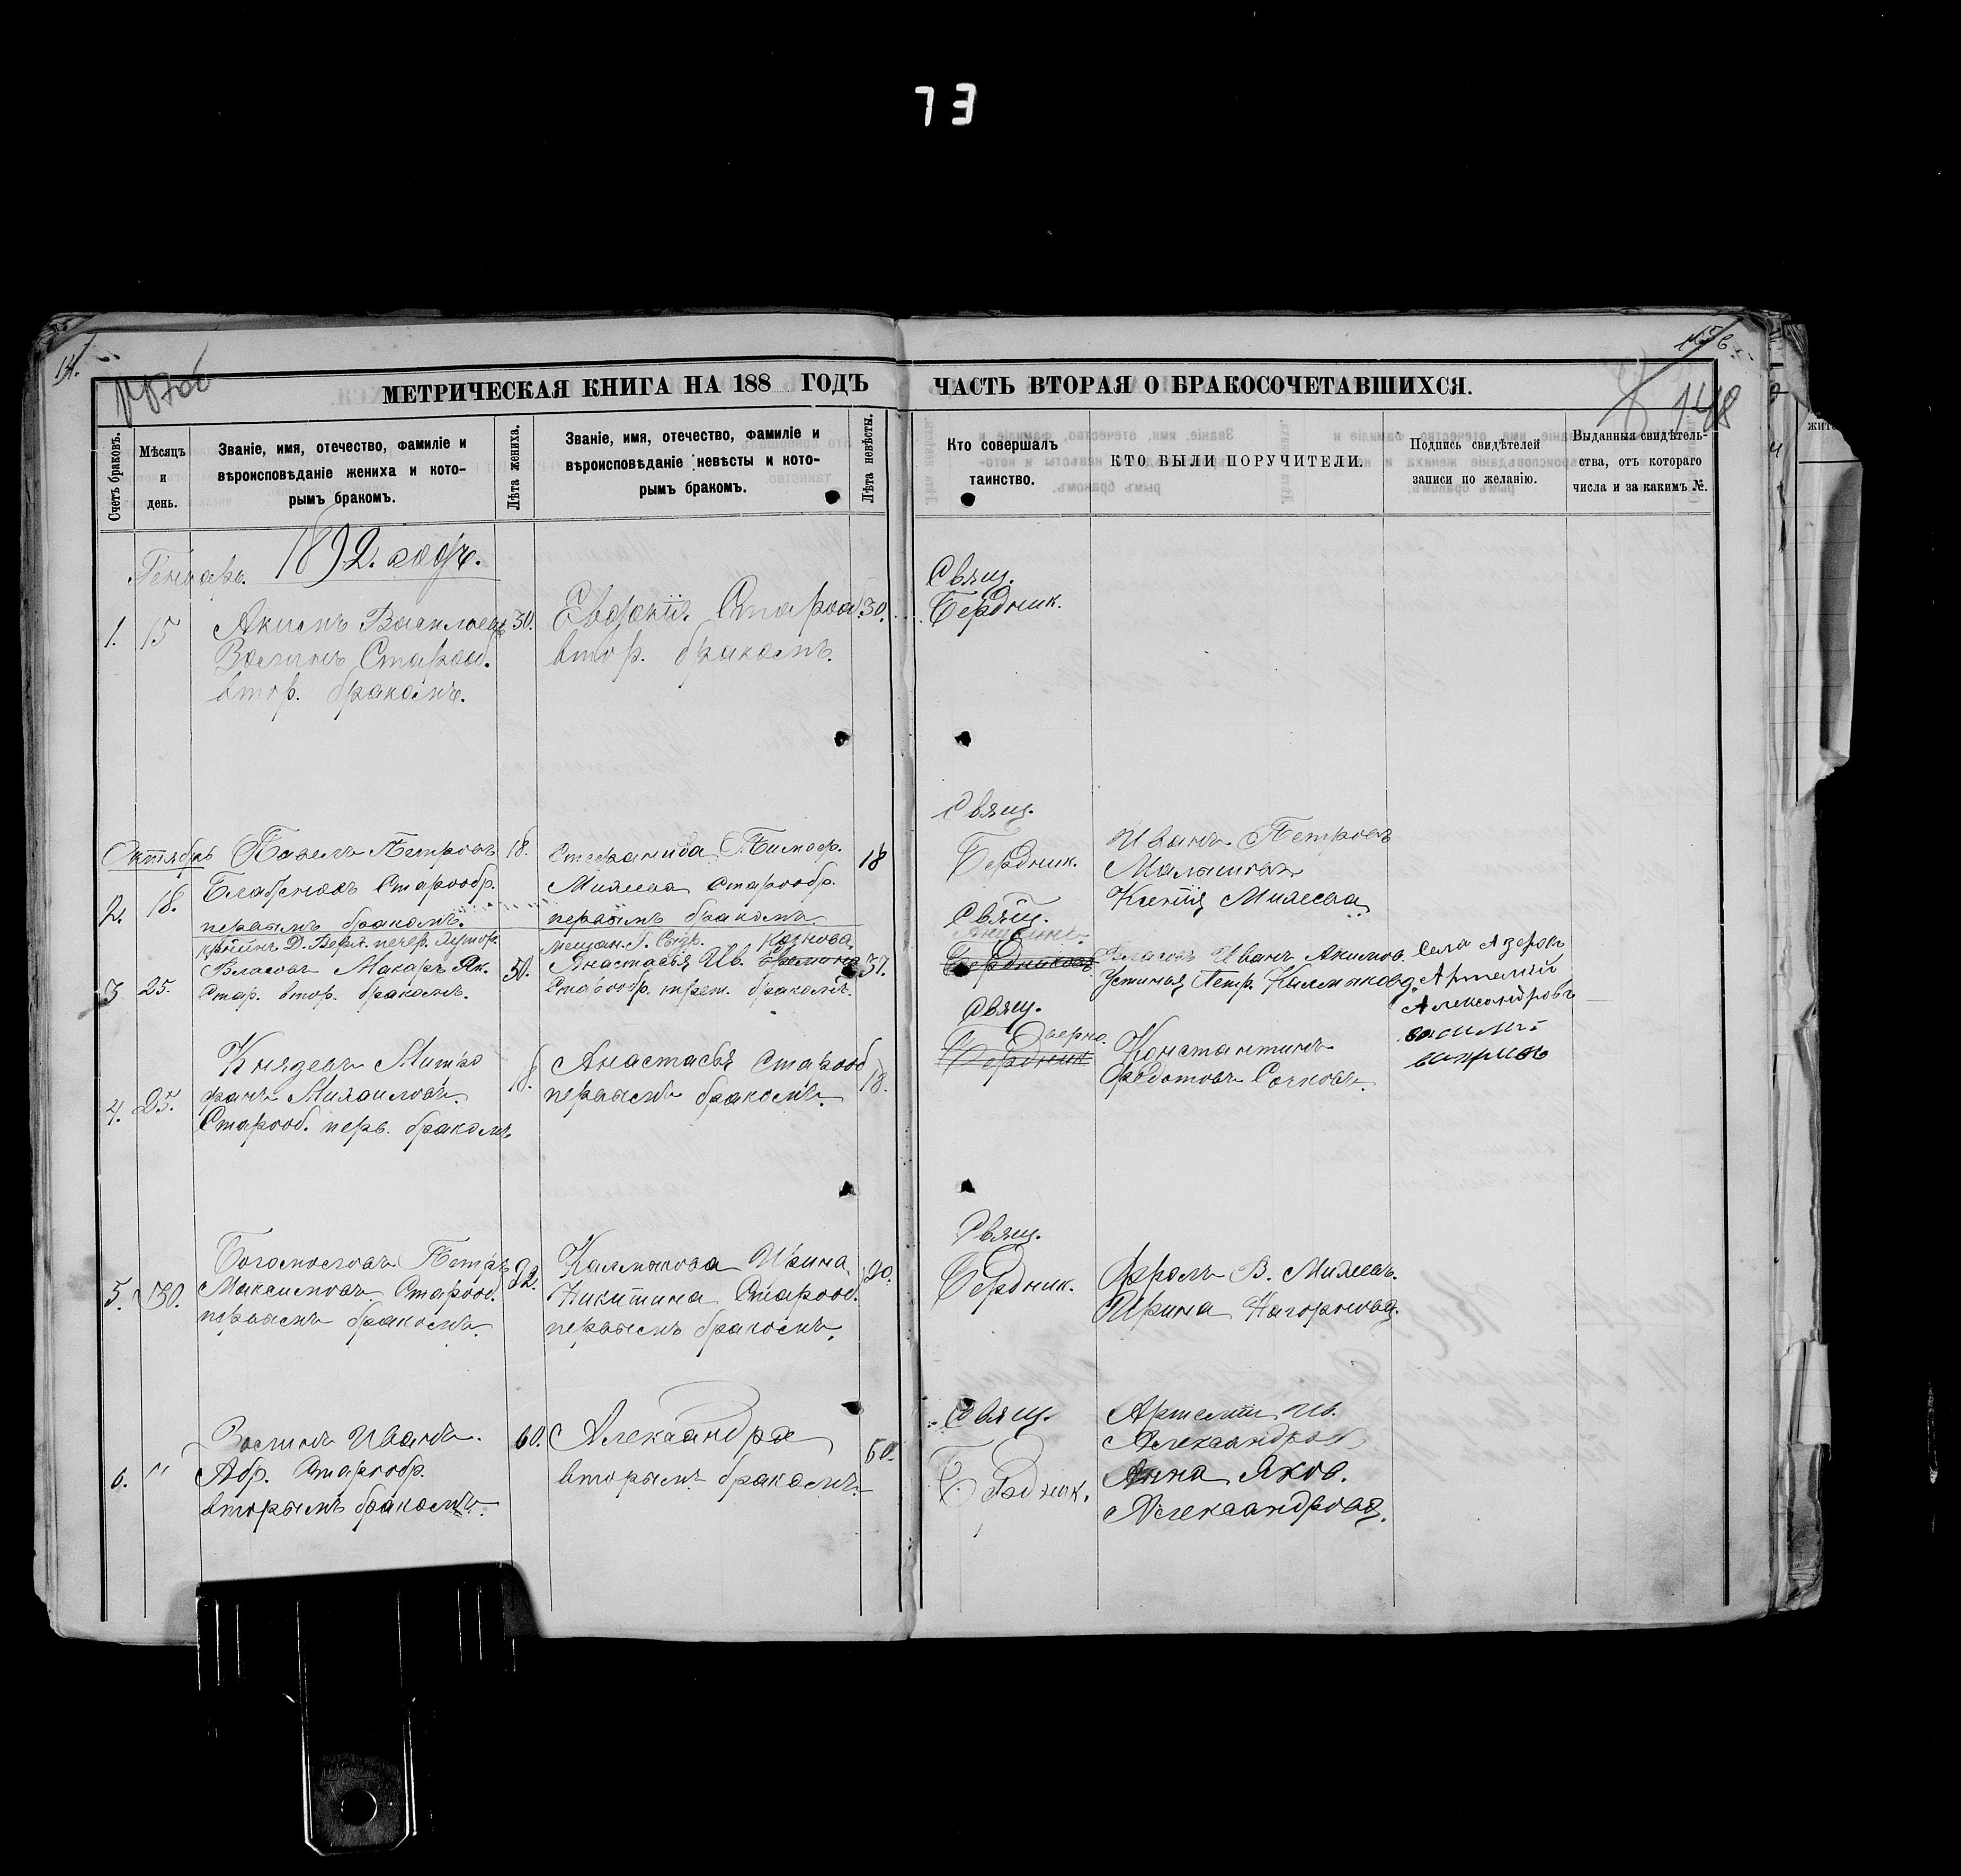 73
14.
15
148
МЕТРИЧЕСКАЯ КНИГА НА 188 ГОДЪ
ЧАСТЬ ВТОРАЯ О БРАКОСОЧЕТАВШИХСЯ.
Счетъ браковъ.
Мѣсяцъ
и
день.
Званіе, имя, отечество, фамиліе и
вѣроисповѣданіе жениха и кото-
рымъ бракомъ.
Лѣта жениха.
Званіе, имя, отечество, фамиліе и
вѣроисповѣданіе невѣсты и кото-
рымъ бракомъ.
Лѣта невѣсты.
Кто совершалъ
таинство.
КТО БЫЛИ ПОРУЧИТЕЛИ.
Подпись свидѣтелей
записи по желанію.
Выданныя свидѣтель-
ства, отъ котораго
числа и за какимъ №.
1892. годъ.
Генварь.
1. 15
Акимъ Василиев
Староо.
втор. бракомъ.
30.
Староо.
втор. бракомъ.
30.
Свящ.
Бердник.
Октябрь
2. 18.
Павелъ Петровъ
Старообр.
первымъ бракомъ.
18.
Стефанида Тимоф.
Михеева Старообр.
первымъ бракомъ
18
Свящ.
Бердник.
Иванъ Петровъ
Малышовъ
Ксенія Михеева
3 25.
Власовъ Макаръ Як.
Стар. втор. бракомъ.
50.
мещан. Г. Сызр. Казкова
Анастасья Ив.
Старообр. трет. бракомъ.
37.
Свящ.
Бердниковъ
Власовъ Иванъ Акимов.
Устинья Петр. Калмыкова
Села Азеровъ
Артемий
Александровъ
4. 25.
Князевъ Митро
фанъ Михаиловъ.
Старооб. перв. бракомъ
18.
Анастасья Старооб
первымъ бракомъ.
18.
Свящ.
Бердник
Константинъ
Федотовъ Сочковъ.
5. 30.
Богомоловъ Петръ
Максимовъ Старооб.
первымъ бракомъ.
32.
Калмыкова Ирина
Никитина Старооб.
первымъ бракомъ.
20.
Свящ.
Бердник.
Фролъ В. Михеевъ.
Ирина Нагорнова.
6. "
Иванъ.
Абр. Старообр.
вторымъ бракомъ.
60.
Александра
вторымъ бракомъ.
60.
Свящ.
Бердник.
Артемій Ив.
Александров
Анна Яков.
Александрова.